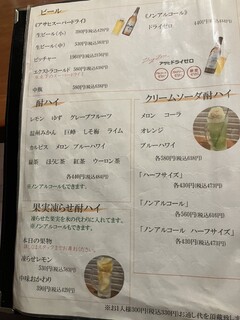 ビール
《アサヒスーパードライ》
生ビール(小)
生ビール(中)
ピッチャー
エクストラコールド
中瓶
ノンアルコール》
ドライゼロ
アサヒドライゼロ
酎ハイ
レモン ゆず グレープフルーツ
温州みかん 巨峰 しそ梅 ライム
カルピス メロン ブルーハワイ
緑茶 ほうじ茶 紅茶 ウーロン茶
各440円(税込484円)
※ノンアルコールもできます。
クリームソーダ酎ハイ
メロン コーラ
オレンジ
ブルーハワイ
各580円(税込638円)
「ハーフサイズ」
各430円(税込473円)
「ノンアルコール」
各580円(税込638円)
「ノンアルコール ハーフサイズ」
各430円(税込473円)
果実凍らせ酎ハイ
凍らせた果実を氷の代わりに入れてます。
※ノンアルコールもできます。
本日の果物
凍らせレモン
中味おかわり
※お1人様300円(税込330円)お通し代を頂戴致し